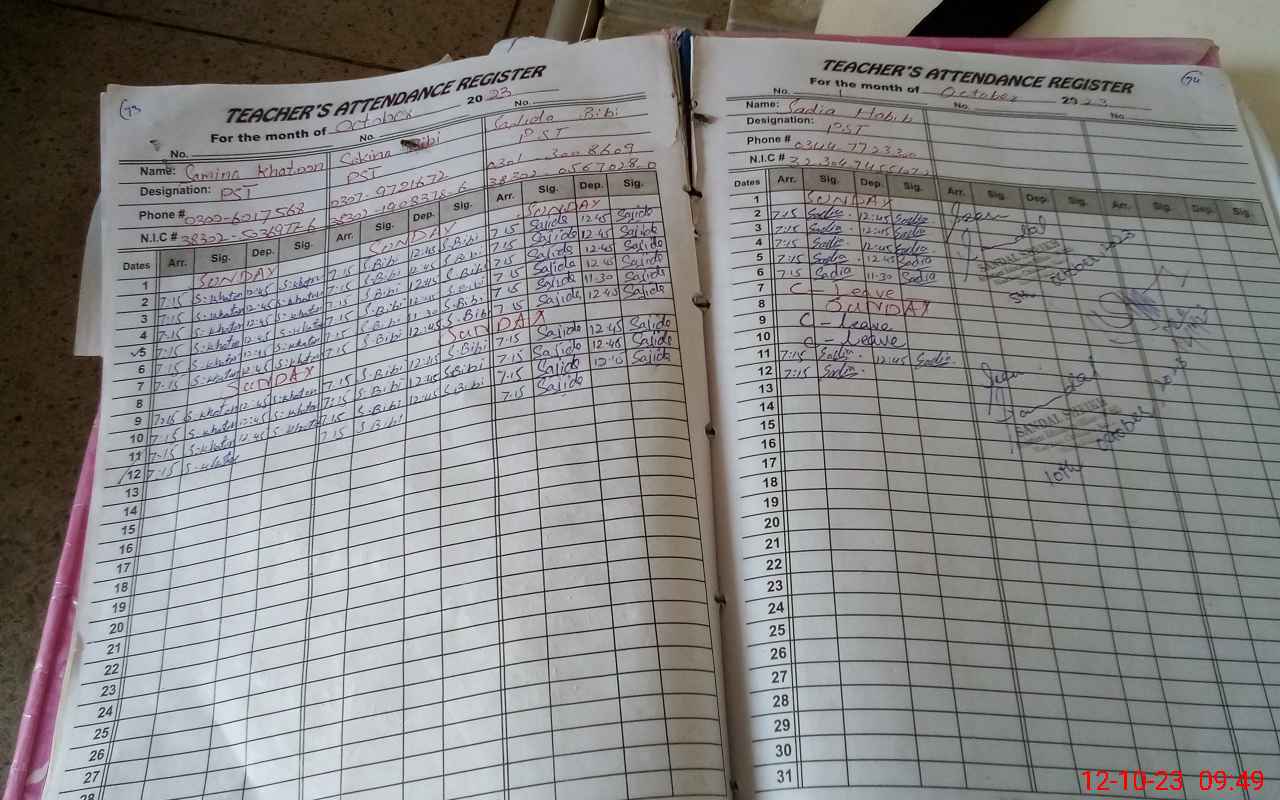 73
TEACHER'S ATTENDANCE REGISTER
For the month of October 2023
No. No. No.
Name: Samina Khatoon Sakina Bibi Sajida Bibi
Designation: PST PST PST
Phone # 0302-6017568 0307-9721672 0301-3008609
N.I.C #
Dates Arr. Sig. Dep. Sig. Arr. Sig. Dep. Sig. Arr. Sig. Dep. Sig.
1 SUNDAY SUNDAY SUNDAY
2 7:15 S.khaton 12:45 S.khaton 7:15 S.Bibi 12:45 S.Bibi 7:15 Sajida 12:45 Sajida
3 7:15 S.khaton 12:45 S.khaton 7:15 S.Bibi 12:45 S.Bibi 7:15 Sajida 12:45 Sajida
4 7:15 S.khaton 12:45 S.khaton 7:15 S.Bibi 12:45 S.Bibi 7:15 Sajida 12:45 Sajida
5 7:15 S.khaton 12:45 S.khaton 7:15 S.Bibi 12:45 S.Bibi 7:15 Sajida 12:45 Sajida
6 7:15 S.khaton S.khaton 7:15 S.Bibi 11:30 S.Bibi 7:15 Sajida 11:30 Sajida
7 7:15 S.khaton 12:45 S.khaton 7:15 S.Bibi 12:45 S.Bibi 7:15 Sajida 12:45 Sajida
8 SUNDAY SUNDAY
9 7:15 S.khaton 12:45 S.khaton 7:15 S.Bibi 12:45 S.Bibi 7:15 Sajida 12:45 Sajida
10 7:15 S.khaton 12:45 S.khaton 7:15 S.Bibi 12:45 S.Bibi 7:15 Sajida 12:45 Sajida
11 7:15 S.khaton 12:45 S.khaton 7:15 S.Bibi 12:45 S.Bibi 7:15 Sajida 12:45 Sajida
12 7:15 S.khaton 7:15 S.Bibi 7:15 Sajida
13
14
15
16
17
18
19
20
21
22
23
24
25
26
27
28
74
TEACHER'S ATTENDANCE REGISTER
For the month of October 2023
No. 1 No. No.
Name: Sadia Habib
Designation: PST
Phone # 0344-7723300
N.I.C #
Dates Arr. Sig. Dep. Sig. Arr. Sig. Dep. Sig. Arr. Sig. Dep. Sig.
1 SUNDAY
2 7:15 Sadia 12:45 Sadia
3 7:15 Sadia 12:45 Sadia
4 7:15 Sadia 12:45 Sadia
5 7:15 Sadia 12:45 Sadia
6 7:15 Sadia 11:30 Sadia
7 C-Leave
8 SUNDAY
9 C-leave
10 C-leave
11 7:15 Sadia 12:45 Sadia
12 7:15 Sadia
13
14
15
16
17
18
19
20
21
22
23
24
25
26
27
28
29
30
31
5th October 2023
10th October, 2023
12-10-23 09:49